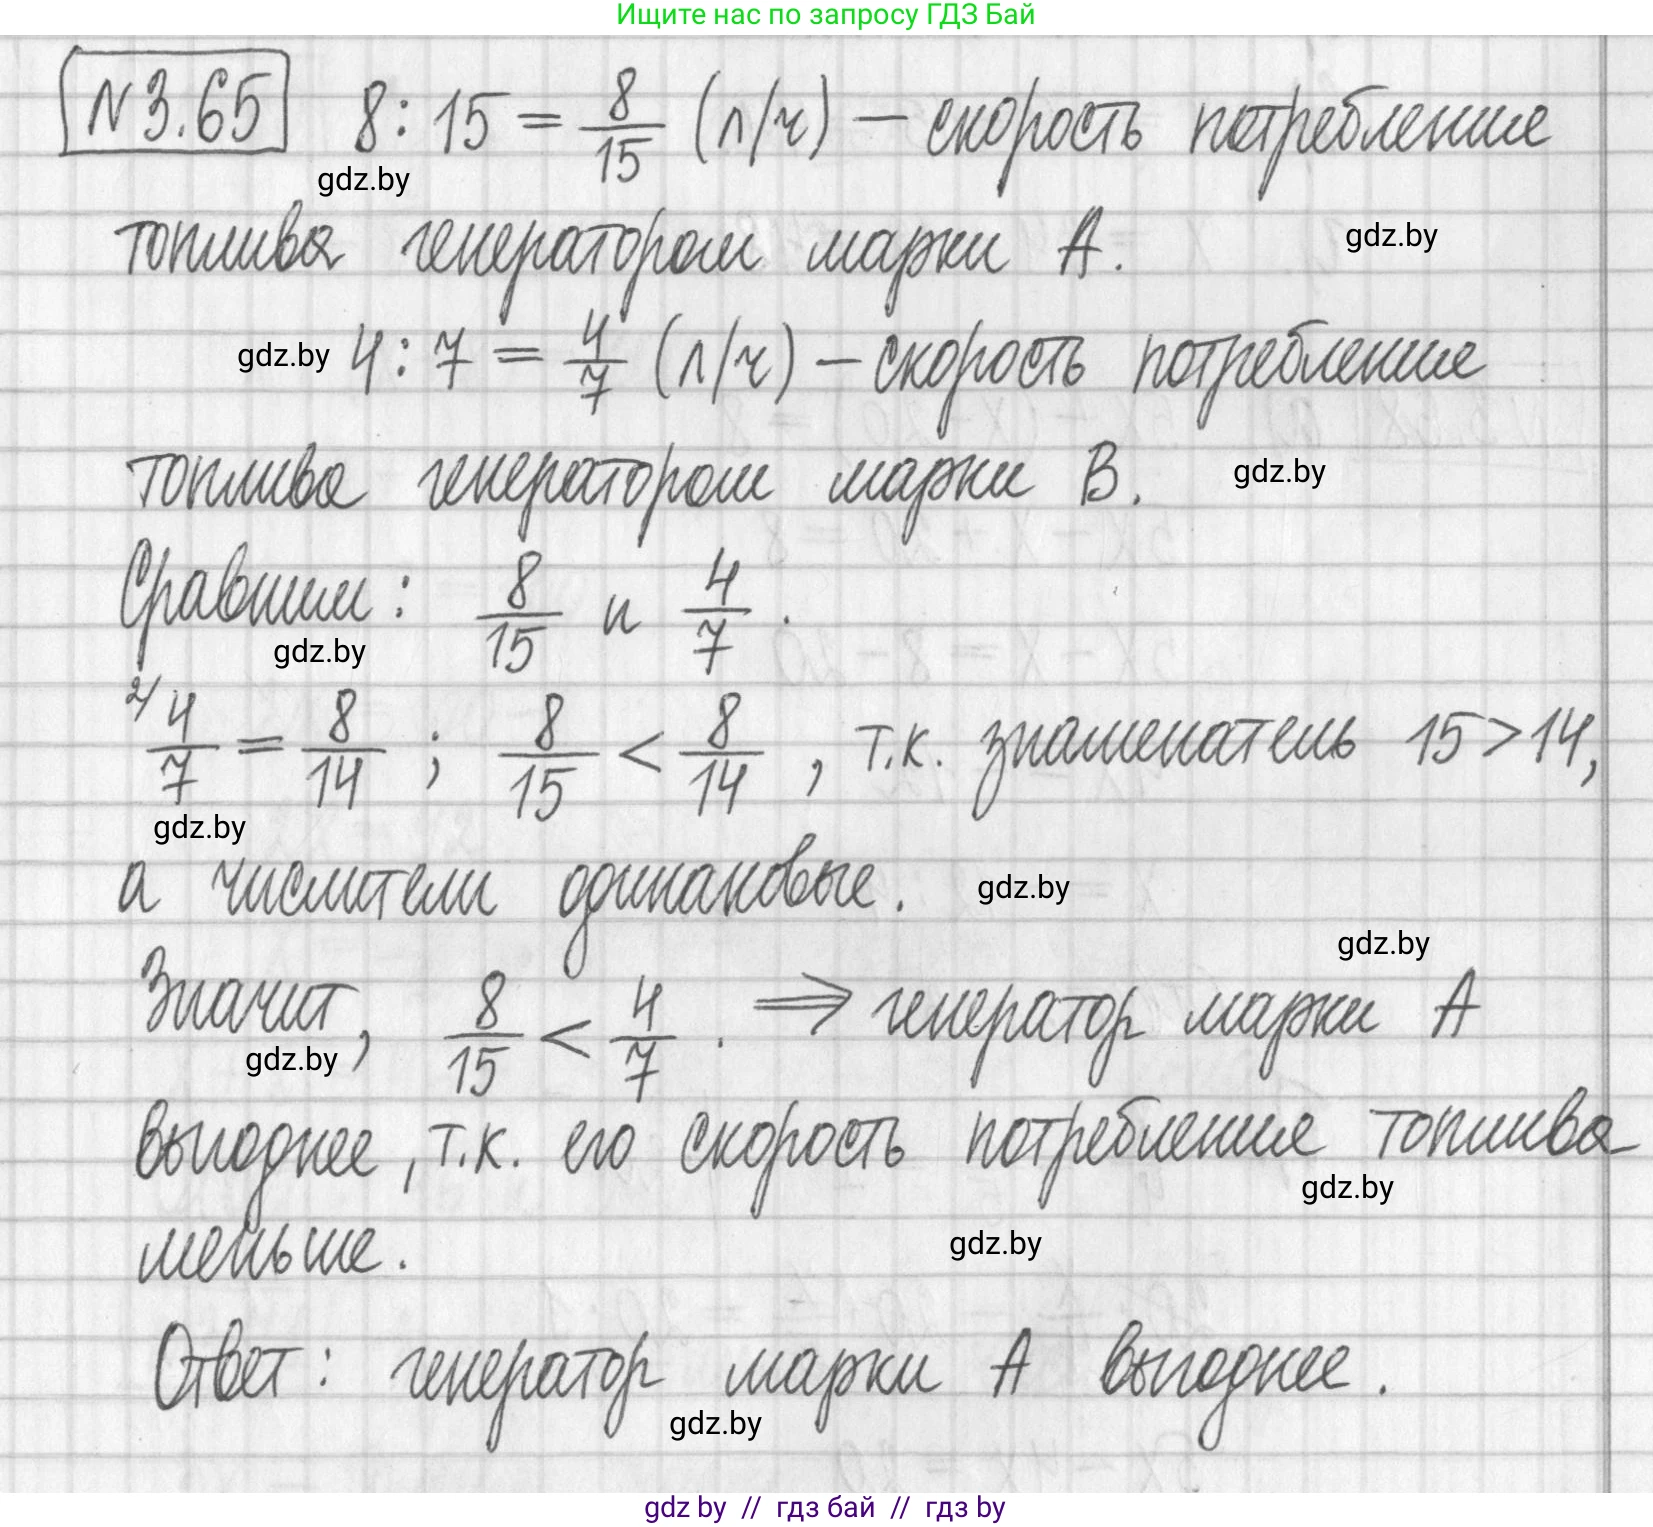 Ищите нас по запросу ГДЗ Бай
N 3.65 8 : 15 = 8/15 (л/ч) – скорость потребление
gdz.by
топлива генератором марки А. gdz.by
gdz.by 4 : 7 = 4/7 (л/ч) – скорость потребление
топлива генератором марки В. gdz.by
Сравним: 8/15 и 4/7.
gdz.by
2/ 4/7 = 8/14 ; 8/15 < 8/14 , т.к. знаменатель 15 > 14,
gdz.by
а числители одинаковые. gdz.by
gdz.by
Значит, 8/15 < 4/7. ⇒ генератор марки А
gdz.by
выгоднее, т.к. его скорость потребление топлива
gdz.by
меньше. gdz.by
Ответ: генератор марки А выгоднее.
gdz.by
gdz by // гдз бай // гдз by